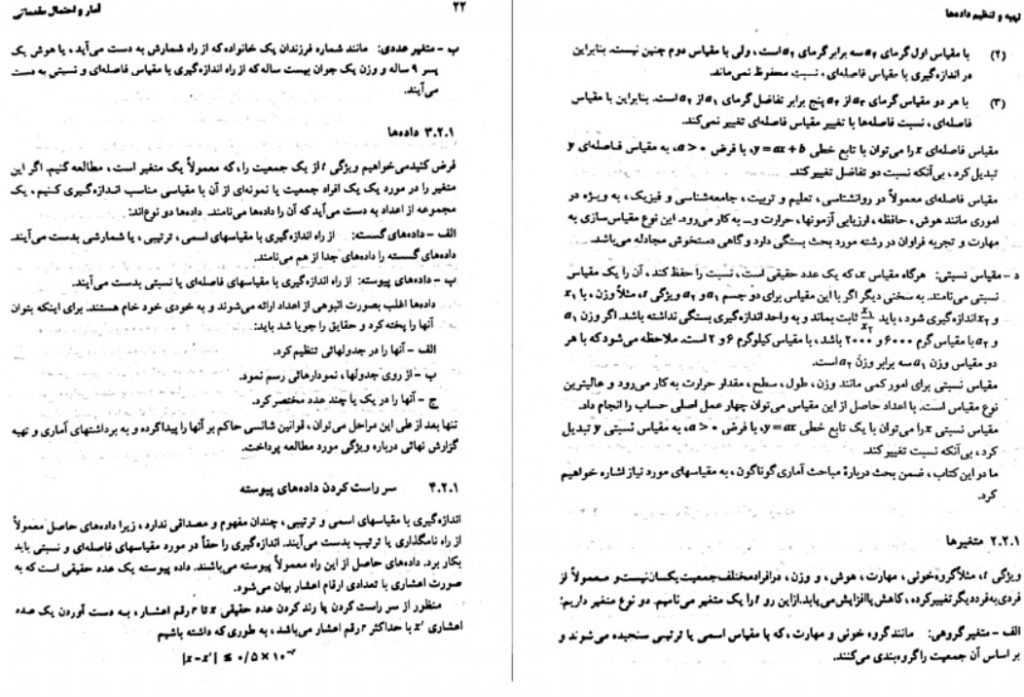 تهیه و تنظیم داده‌ها
(۲) با مقیاس اول گرمای a₃ سه برابر گرمای a₂ است، ولی با مقیاس دوم چنین نیست. بنابراین
در اندازه‌گیری با مقیاس فاصله‌ای، نسبت محفوظ نمی‌ماند.
(۳) با هر دو مقیاس گرمای a₃ از a₂ پنج برابر تفاضل گرمای a₁ از a₂ است. بنابراین با مقیاس
فاصله‌ای، نسبت فاصله‌ها با تغییر مقیاس فاصله‌ای تغییر نمی‌کند.
مقیاس فاصله‌ای x را می‌توان با تابع خطی y=ax+b، با فرض a>۰، به مقیاس فاصله‌ای y
تبدیل کرد، بی‌آنکه نسبت دو تفاضل تغییر کند.
مقیاس فاصله‌ای معمولاً در روانشناسی، تعلیم و تربیت، جامعه‌شناسی و فیزیک، به ویژه در
اموری مانند هوش، حافظه، ارزیابی آزمونها، حرارت و... به کار می‌رود. این نوع مقیاس‌سازی به
مهارت و تجربه فراوان در رشته مورد بحث بستگی دارد و گاهی دستخوش مجادله می‌باشد.
د - مقیاس نسبتی: هرگاه مقیاس x، که یک عدد حقیقی است، نسبت را حفظ کند، آن را یک مقیاس
نسبتی می‌نامند. به سخنی دیگر اگر با این مقیاس برای دو جسم a₁ و a₂ ویژگی t، مثلاً وزن، با x₁
و x₂ اندازه‌گیری شود، باید x₁/x₂ ثابت بماند و به واحد اندازه‌گیری بستگی نداشته باشد. اگر وزن a₁
و a₂ با مقیاس گرم ۶۰۰۰ و ۲۰۰۰ باشد، با مقیاس کیلوگرم ۶ و ۲ است. ملاحظه می‌شود که با هر
دو مقیاس وزن a₁ سه برابر وزن a₂ است.
مقیاس نسبتی برای امور کمی مانند وزن، طول، سطح، مقدار حرارت به کار می‌رود و عالیترین
نوع مقیاس است. با اعداد حاصل از این مقیاس می‌توان چهار عمل اصلی حساب را انجام داد.
مقیاس نسبتی x را می‌توان با یک تابع خطی y=ax، با فرض a>۰، به مقیاس نسبتی y تبدیل
کرد، بی‌آنکه نسبت تغییر کند.
ما در این کتاب، ضمن بحث دربارهٔ مباحث آماری گوناگون، به مقیاسهای مورد نیاز اشاره خواهیم
کرد.
۲.۲.۱ متغیرها
ویژگی t، مثلاً گروه خونی، مهارت، هوش، و وزن، در افراد مختلف جمعیت یکسان نیست و معمولاً از
فردی به فرد دیگر تغییر کرده، کاهش یا افزایش می‌یابد. از این رو t را یک متغیر می‌نامیم. دو نوع متغیر داریم:
الف - متغیر گروهی: مانند گروه خونی و مهارت، که با مقیاس اسمی یا ترتیبی سنجیده می‌شوند و
بر اساس آن جمعیت را گروه‌بندی می‌کنند.
۲۲ آمار و احتمال مقدماتی
ب - متغیر عددی: مانند شماره فرزندان یک خانواده که از راه شمارش به دست می‌آید، یا هوش یک
پسر ۹ ساله و وزن یک جوان بیست ساله که از راه اندازه‌گیری با مقیاس فاصله‌ای و نسبتی به دست
می‌آیند.
۳.۲.۱ داده‌ها
فرض کنید می‌خواهیم ویژگی t از یک جمعیت را، که معمولاً یک متغیر است، مطالعه کنیم. اگر این
متغیر را در مورد یک یک افراد جمعیت یا نمونه‌ای از آن با مقیاسی مناسب اندازه‌گیری کنیم، یک
مجموعه از اعداد به دست می‌آید که آن را داده‌ها می‌نامند. داده‌ها دو نوع‌اند:
الف - داده‌های گسسته: از راه اندازه‌گیری با مقیاسهای اسمی، ترتیبی، یا شمارشی بدست می‌آیند.
داده‌های گسسته را داده‌های جدا از هم می‌نامند.
ب - داده‌های پیوسته: از راه اندازه‌گیری با مقیاسهای فاصله‌ای یا نسبتی بدست می‌آیند.
داده‌ها اغلب بصورت انبوهی از اعداد ارائه می‌شوند و به خودی خود خام هستند. برای اینکه بتوان
آنها را پخته کرد و حقایق را جویا شد باید:
الف - آنها را در جدولهائی تنظیم کرد.
ب - از روی جدولها، نمودارهائی رسم نمود.
ج - آنها را در یک یا چند عدد مختصر کرد.
تنها بعد از طی این مراحل می‌توان، قوانین شانسی حاکم بر آنها را پیدا کرده و به برداشتهای آماری و تهیه
گزارش نهائی درباره ویژگی مورد مطالعه پرداخت.
۴.۲.۱ سر راست کردن داده‌های پیوسته
اندازه‌گیری با مقیاسهای اسمی و ترتیبی، چندان مفهوم و مصداقی ندارد، زیرا داده‌های حاصل معمولاً
از راه نامگذاری یا ترتیب بدست می‌آیند. اندازه‌گیری را حقاً در مورد مقیاسهای فاصله‌ای و نسبتی باید
بکار برد. داده‌های حاصل از این راه معمولاً پیوسته می‌باشند. داده پیوسته یک عدد حقیقی است که به
صورت اعشاری با تعدادی ارقام اعشار بیان می‌شود.
منظور از سر راست کردن یا رند کردن عدد حقیقی x تا r رقم اعشار، به دست آوردن یک عدد
اعشاری x′ با حداکثر r رقم اعشار می‌باشد، به طوری که داشته باشیم
|x-x′| ≤ ۰/۵×۱۰⁻ʳ